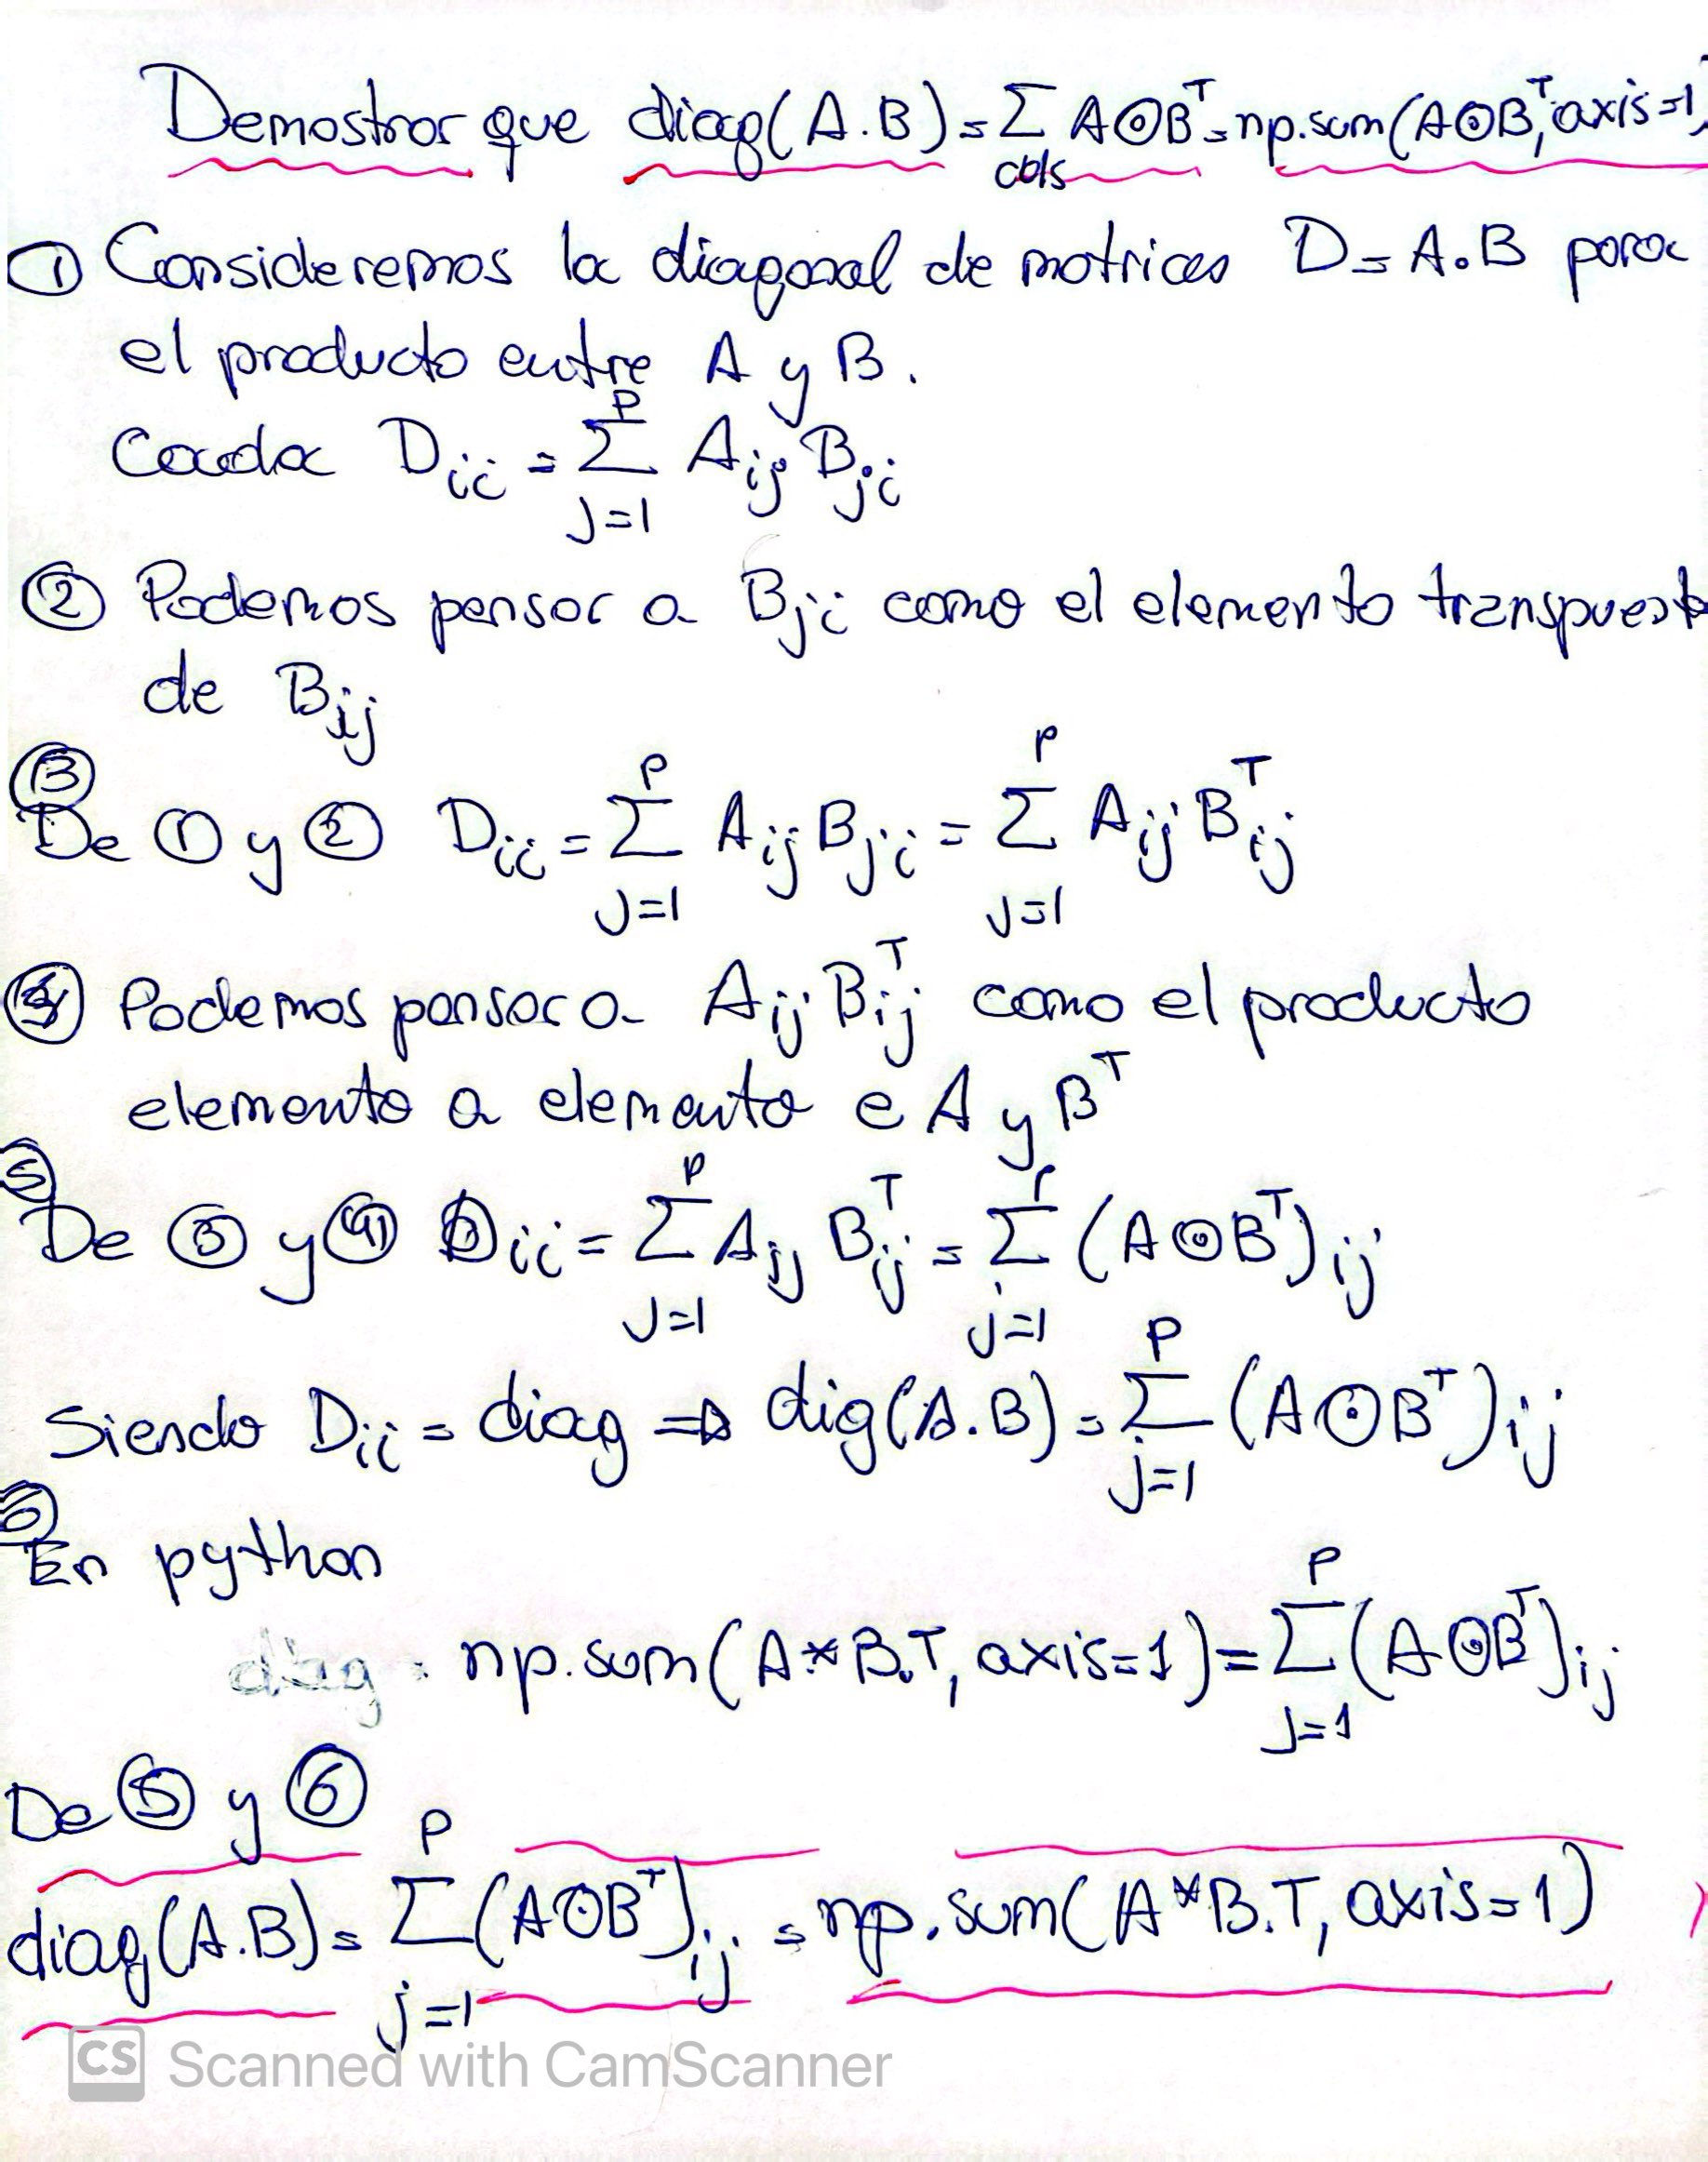 Demostrar que diag(A.B) = Σ A⊙Bᵀ = np.sum(A⊙Bᵀ, axis=1)
cols
① Consideremos la diagonal de matrices D = A.B para
el producto entre A y B.
Cada Dii = Σ_{j=1}^{P} Aij Bji
② Podemos pensar a Bji como el elemento transpuest
de Bij
③
De ① y ② Dii = Σ_{j=1}^{P} Aij Bji = Σ_{j=1}^{P} Aij Bᵀij
④ Podemos pensar a Aij Bᵀij como el producto
elemento a elemento e A y Bᵀ
⑤
De ③ y ④ Dii = Σ_{j=1}^{P} Aij Bᵀij = Σ_{j=1}^{P} (A⊙Bᵀ)ij
Siendo Dii = diag ⇒ dig(A.B) = Σ_{j=1}^{P} (A⊙Bᵀ)ij
⑥
En python
diag = np.sum(A*B.T, axis=1) = Σ_{j=1}^{P} (A⊙Bᵀ)ij
De ⑤ y ⑥
diag(A.B) = Σ_{j=1}^{P} (A⊙Bᵀ)ij = np.sum(A*B.T, axis=1)
CS Scanned with CamScanner